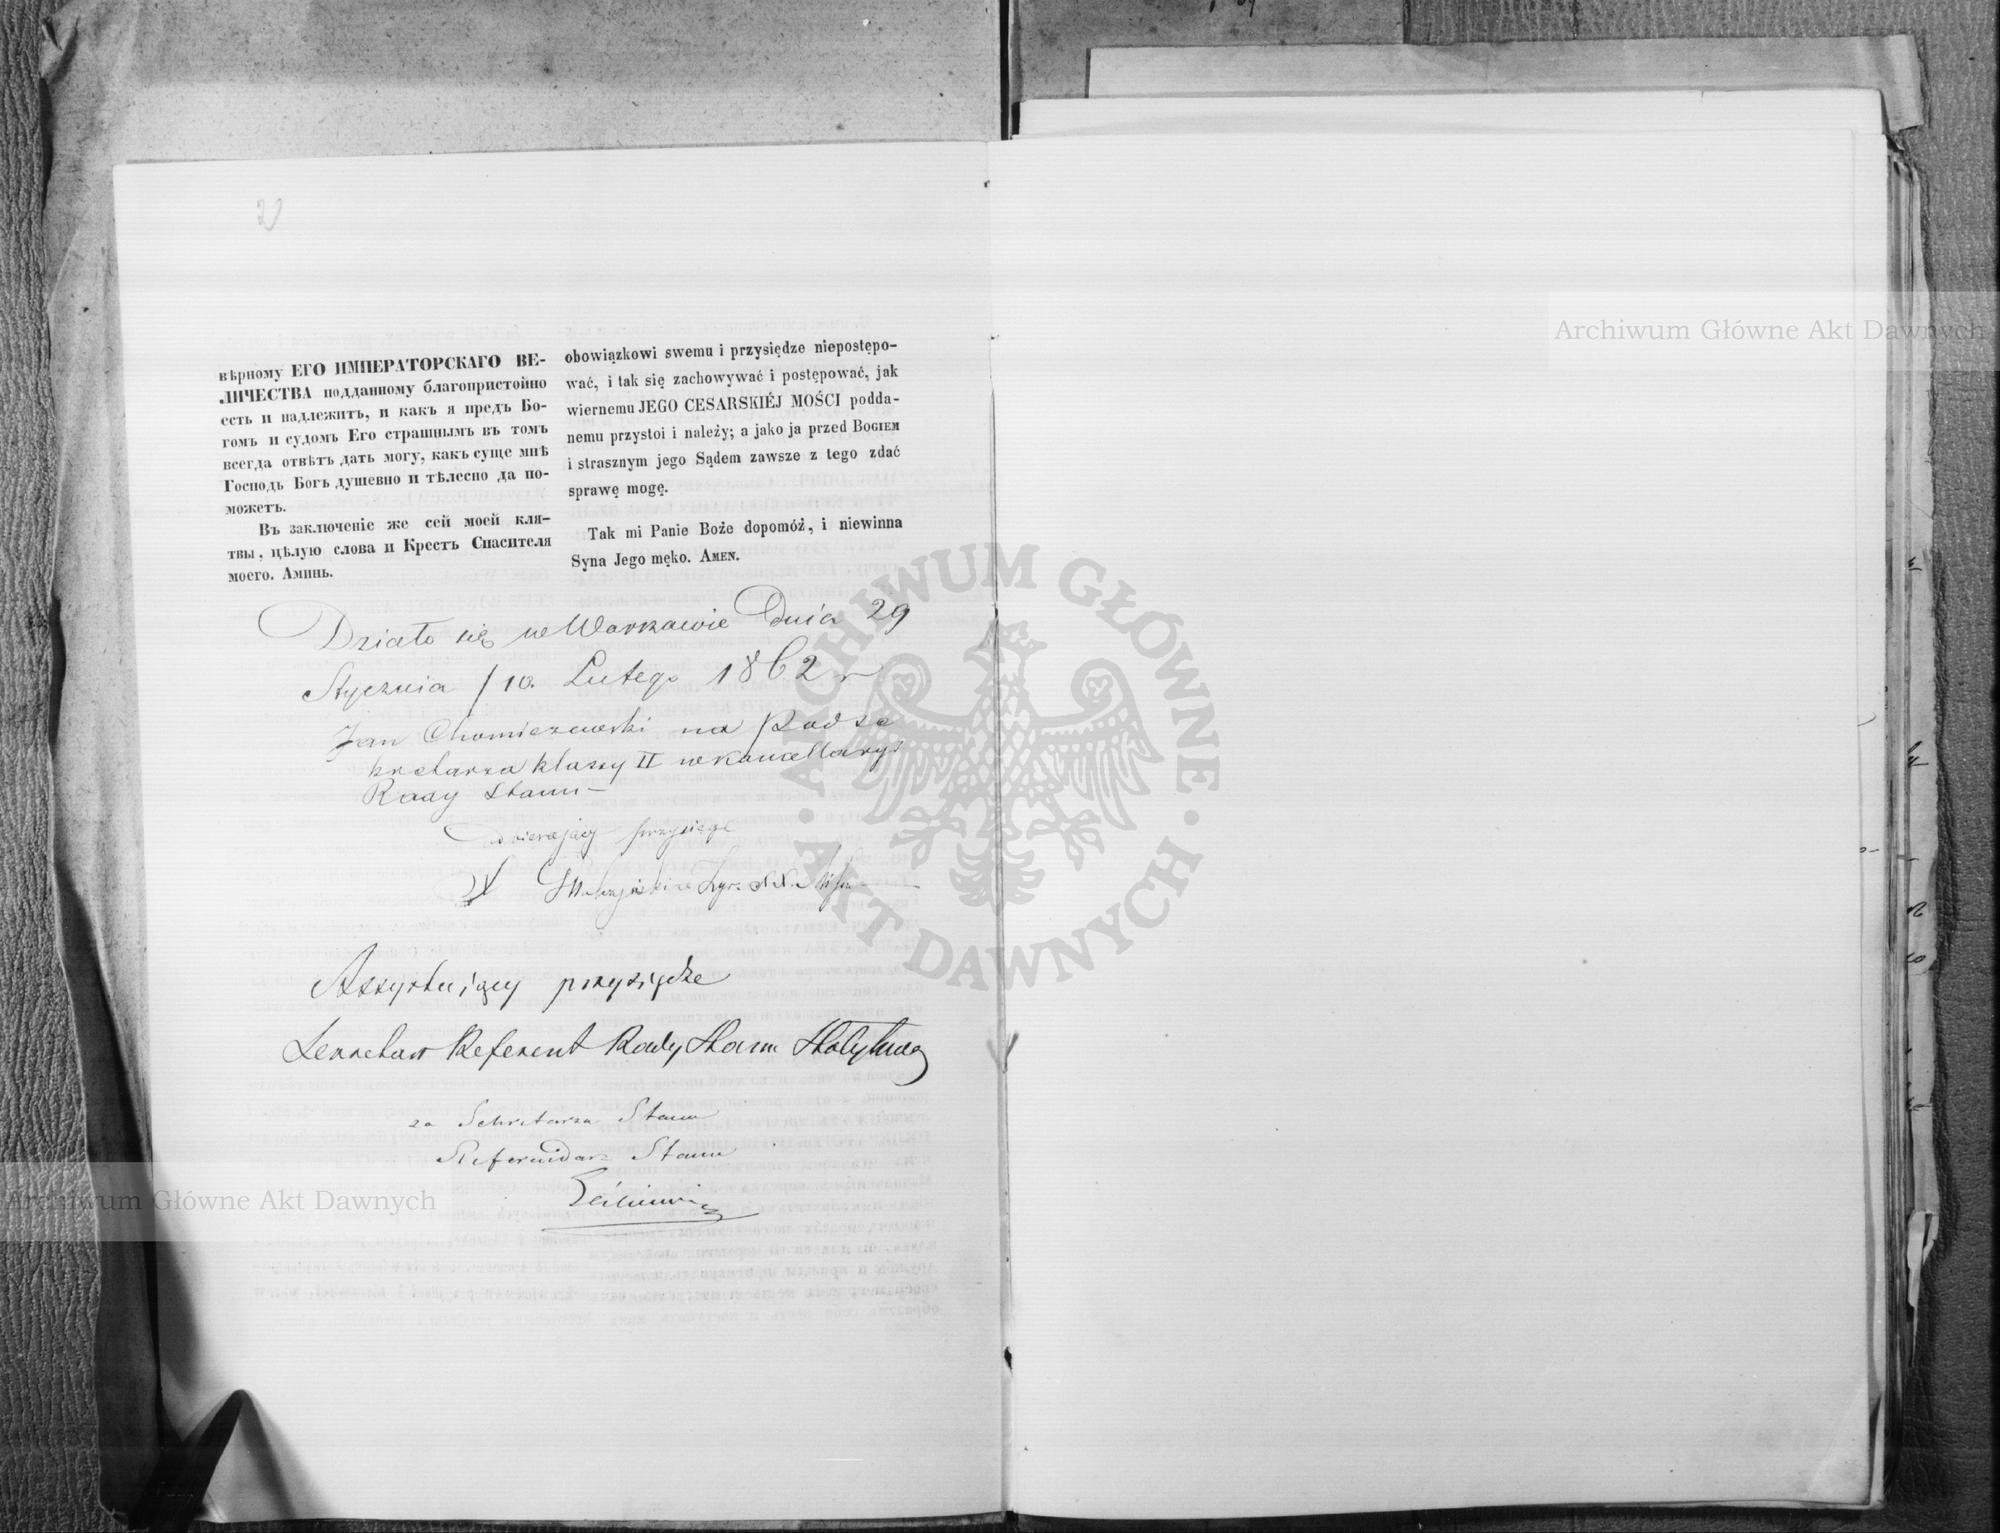 2
вѣрному ЕГО ИМПЕРАТОРСКАГО ВЕ-
ЛИЧЕСТВА подданному благопристойно
есть и надлежитъ, и какъ я предъ Бо-
гомъ и судомъ Его страшнымъ въ томъ
всегда отвѣтъ дать могу, какъ суще мнѣ
Господь Богъ душевно и тѣлесно да по-
можетъ.
Въ заключеніе же сей моей кля-
твы, цѣлую слова и Крестъ Спасителя
моего. Аминь.
obowiązkowi swemu i przysiędze niepostępo-
wać, i tak się zachowywać i postępować, jak
wiernemu JEGO CESARSKIÉJ MOŚCI podda-
nemu przystoi i należy; a jako ja przed BOGIEM
i strasznym jego Sądem zawsze z tego zdać
sprawę mogę.
Tak mi Panie Boże dopomóż, i niewinna
Syna Jego męko. AMEN.
Działo się w Warszawie Dnia 29
Stycznia / 10. Lutego 1862 r
Jan na Podse
kretarza klassy II w Kancellaryi
Rady Stanu
Odbierający przysięgę
Assystujący przysiędze
Sekretarz Referent Rady Stanu
za Sekretarza Stanu
Referendarz Stanu
Archiwum Główne Akt Dawnych
Archiwum Główne Akt Dawnych
ARCHIWUM GŁÓWNE AKT DAWNYCH